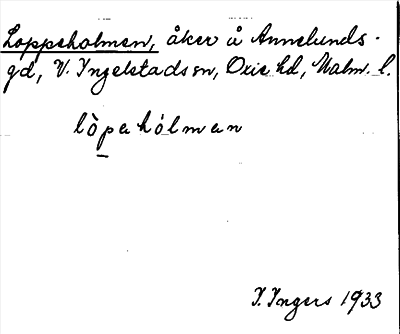 Loppeholmen, åker å Annelunds-
gd, V. Ingelstads sn, Oxie hd, Malm. l.
lòpahólmen
I. Ingers 1933